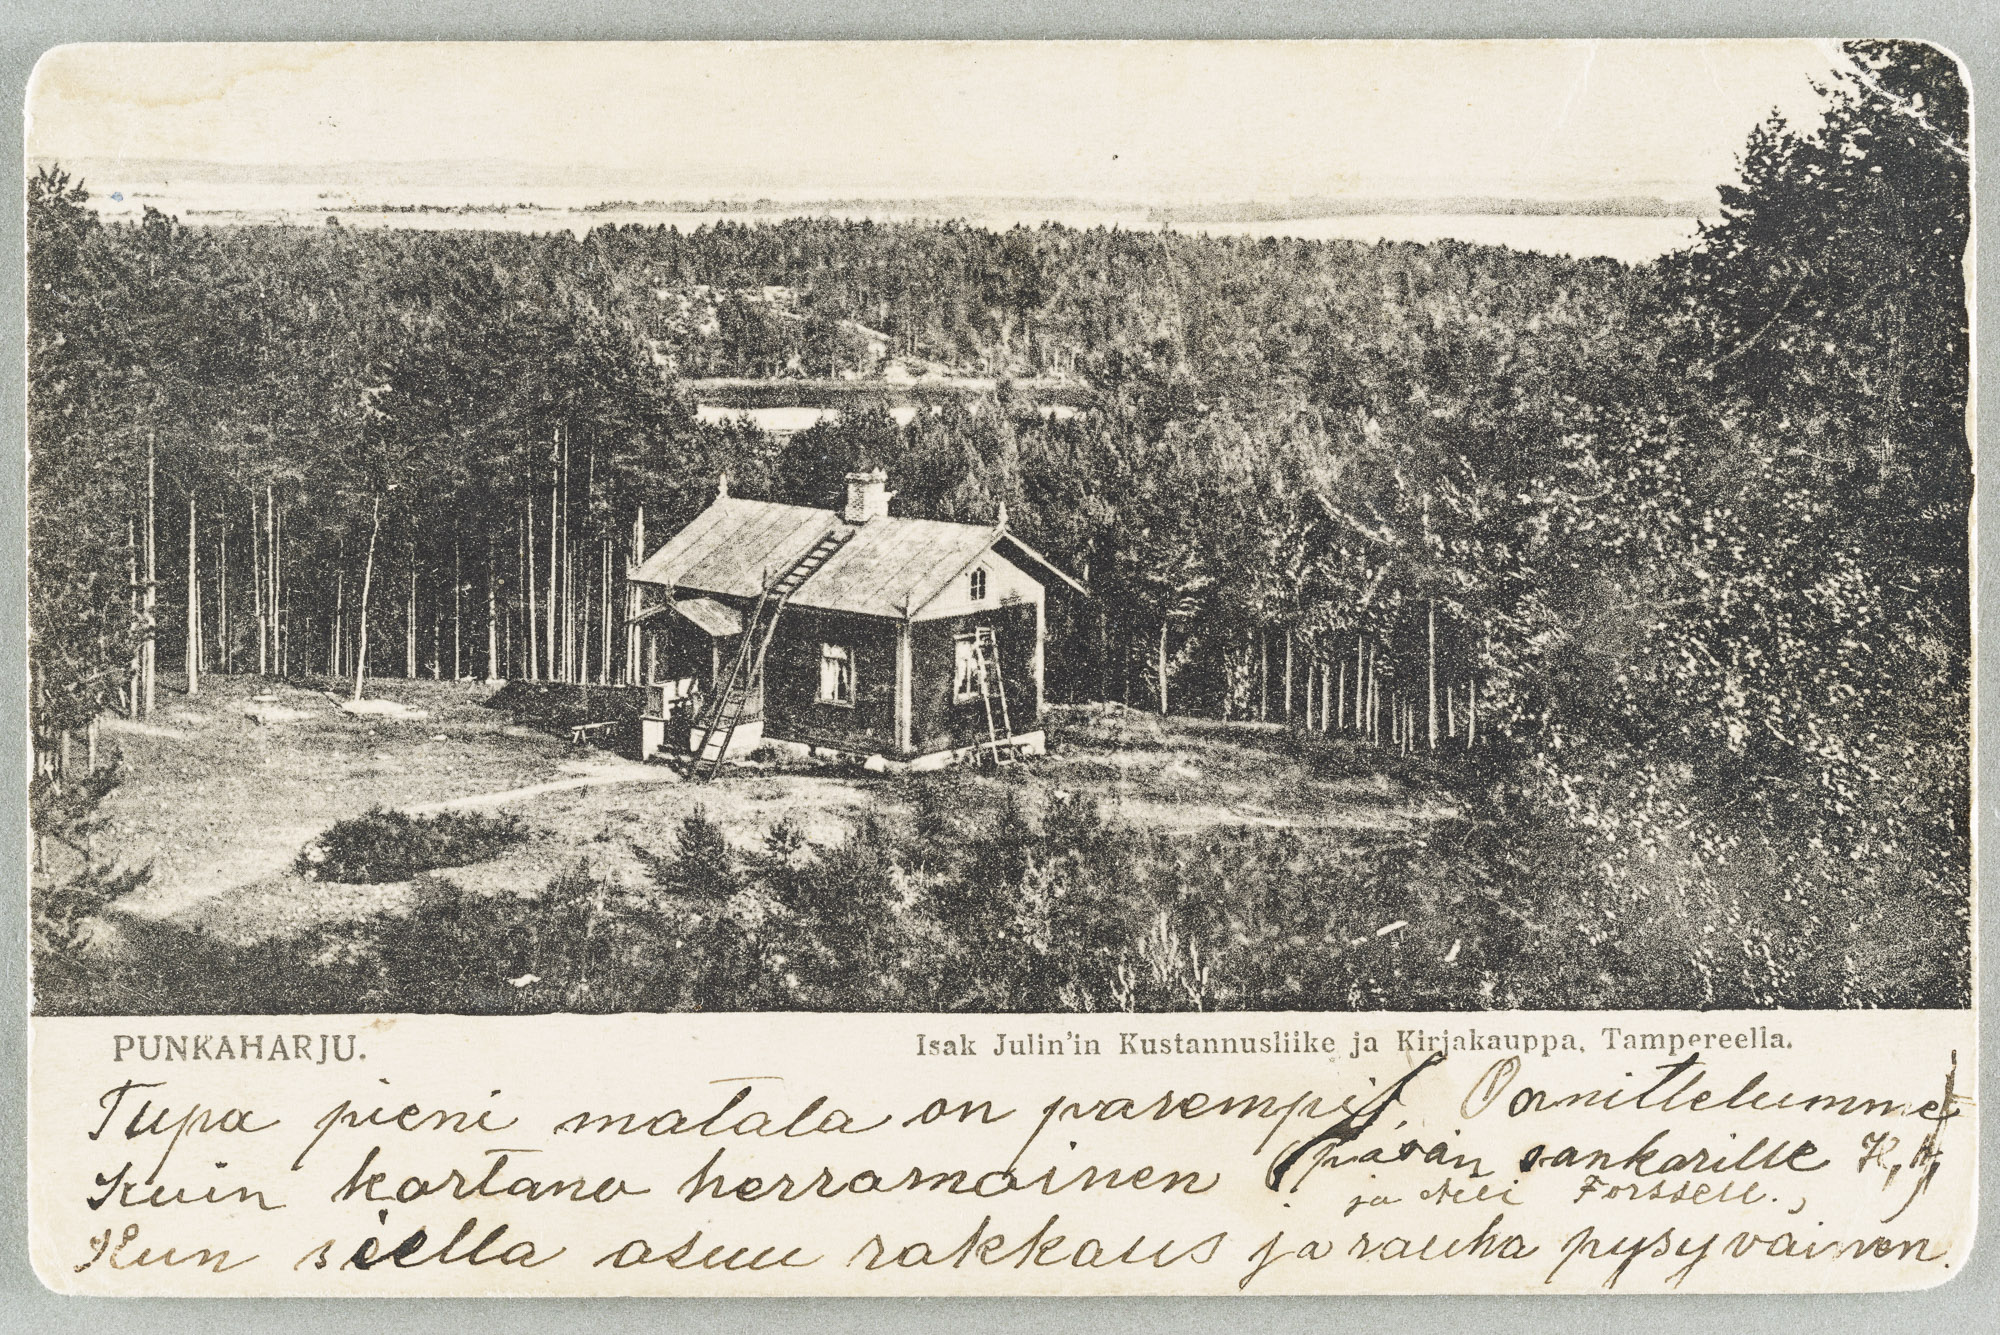 PUNKAHARJU.
Isak Julin'in Kustannusliike ja Kirjakauppa, Tampereella.
Tupa pieni matala on parempi
Kuin kartano herramainen
Kun siella asuu rakkaus ja rauha pysyvainen.
Onnittelumme
päivän sankarille
ja Forssell.